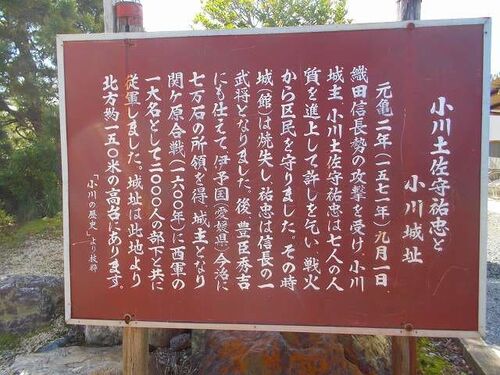 小川土佐守祐忠と
小川城址
元亀二年(一五七一年)九月一日
織田信長勢の攻撃を受け、小川
城主、小川土佐守祐忠は七人の人
質を進上して許しを乞い、戦火
から区民を守りました。その時
城(館)は焼失し、祐忠は信長の一
武将となりました。後、豊臣秀吉
にも仕えて、伊予国(愛媛県)今治に
七万石の所領を得、城主となり
関ヶ原合戦(一六〇〇年)に西軍の
一大名として二〇〇〇人の部下と共に
従軍しました。城址は此地より
北方約一五〇米の高台にあります。
「小川の歴史」より抜粋